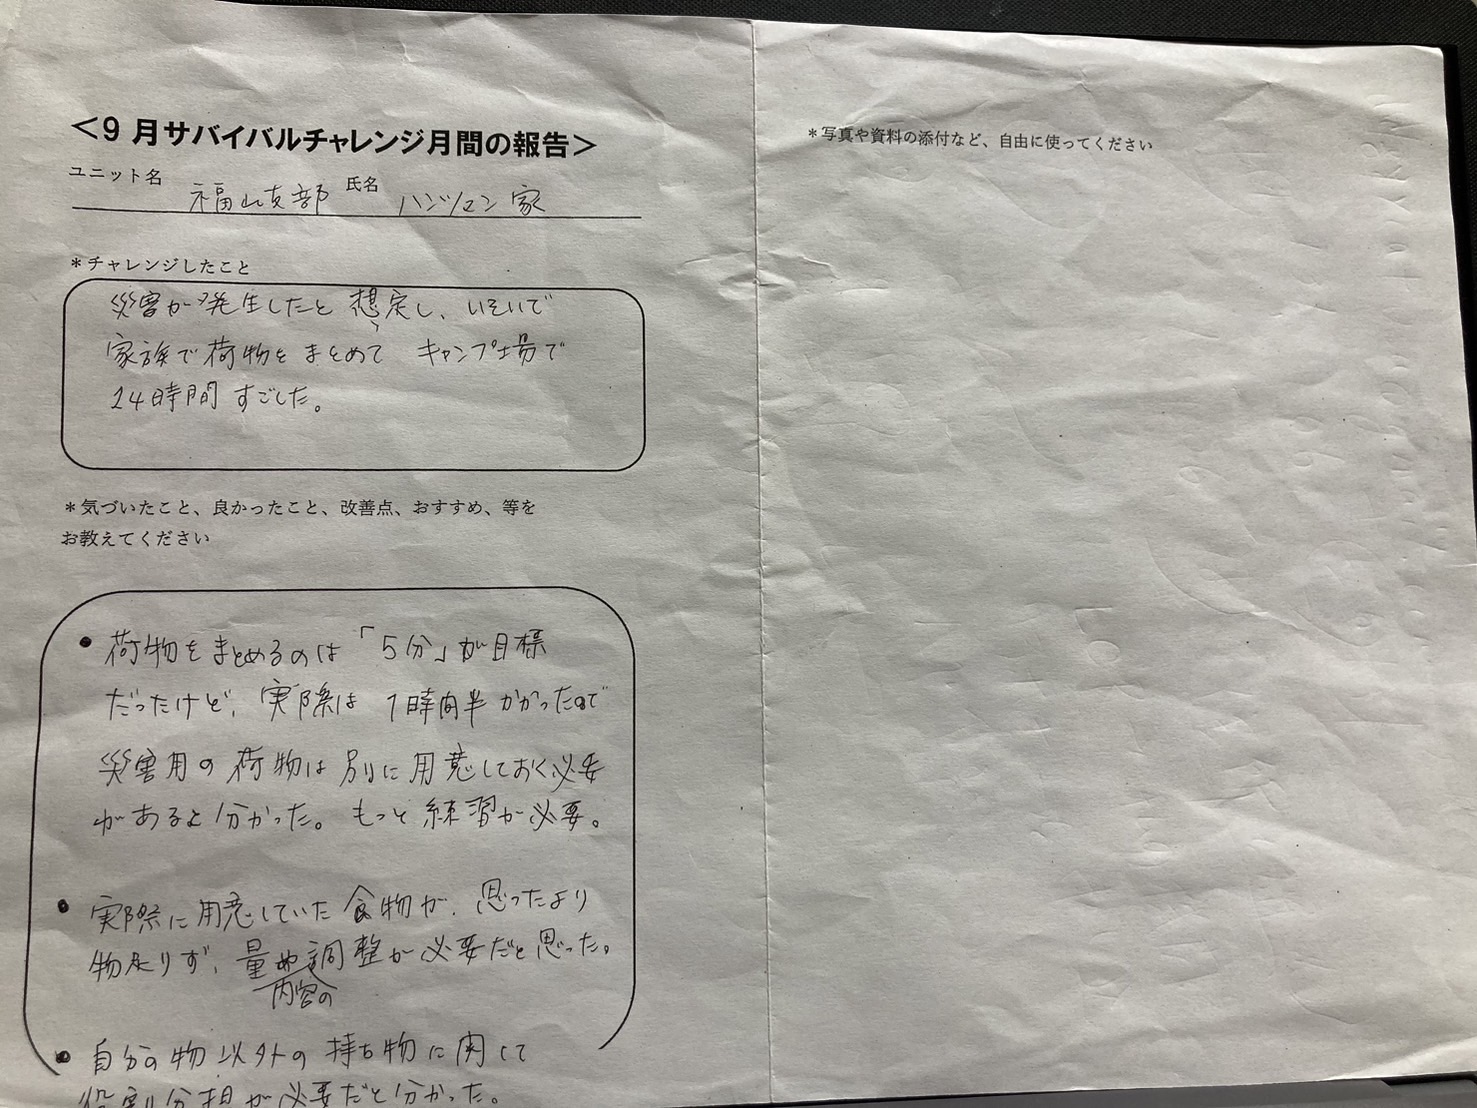 ＜9 月サバイバルチャレンジ月間の報告＞
ユニット名 福山支部 氏名 ハンソン家
＊チャレンジしたこと
災害が発生したと想定し、いそいで
家族で荷物をまとめて キャンプ場で
24時間 すごした。
＊気づいたこと、良かったこと、改善点、おすすめ、等を
お教えてください
• 荷物をまとめるのは「5分」が目標
だったけど、実際は 1時間半かかったので
災害用の荷物は別に用意しておく必要
があると分かった。もっと練習が必要。
• 実際に用意していた食物が、思ったより
物足りず、量や内容の調整が必要だと思った。
• 自分の物以外の持ち物に関して
役割分担が必要だと分かった。
＊写真や資料の添付など、自由に使ってください